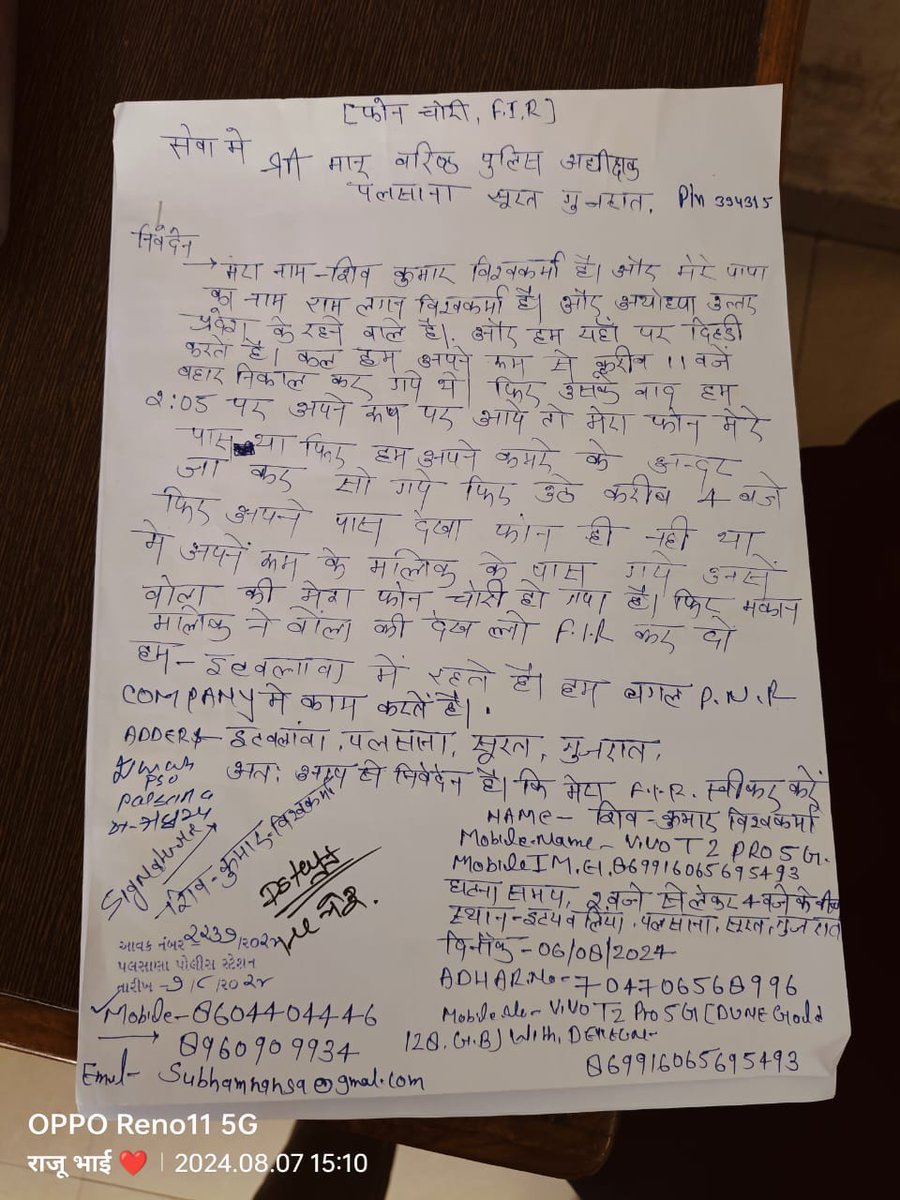 [फोन चोरी, F.I.R]
सेवा मे
श्री मान् वरिष्ठ पुलिस अधीक्षक
पलसाना सूरत गुजरात, Pin 394315
निवेदन
→ मेरा नाम-शिव कुमार विश्वकर्मा है। और मेरे पापा
का नाम राम लगन विश्वकर्मा है। और अयोध्या उत्तर
प्रदेश के रहने वाले है। और हम यहाँ पर दिहडी
करते है। कल हम अपने कम से करीब 11 वजे
बहार निकाल कर गये थे। फिर उसके बाद हम
2:05 पर अपने कम पर आये तो मेरा फोन मेरे
पास था फिर हम अपने कमरे के अन्दर
जा कर सो गये फिर उठे करीब 4 बजे
फिर अपने पास देखा फोन ही नही था
मे अपने कम के मालिक के पास गये उनसे
बोला की मेरा फोन चोरी हो गया है। फिर मकान
मालिक ने बोला की देख लो F.I.R कर दो
हम - इटवलावा में रहते है। हम बगल P.N.R
COMPANY मे काम करते है।
ADDERS- इटवलांवा, पलसाना, सूरत, गुजरात,
अत: आप से निवेदन है। कि मेरा F.I.R. स्वीकर करें
PSO
Palsana
NAME- शिव-कुमार विश्वकर्मा
Mobile-Name- ViVO T2 PRO 5G.
Mobile IM.
घटना समय, 2 वजे से लेकर 4 वजे के बीच
स्थान- इटयव लिया, पलसाना, सूरत, गुजरात
दिनाँक- 06/08/2024
ADHAR.No- 704706568996
Signature
शिव-कुमार-विश्वकर्मा
આવક નંબર 2239/૨૦૨૪
પલસાણા પોલીસ સ્ટેશન
તારીખ-૭/૮/૨૦૨૪
Mobile- 8604404446
→ 8960909934
Mobile ViVO T2 Pro 5G [DUNE Gould
128.G.B) With,
869916065695493
Emul- Subhamhansa@gmal.com
OPPO Reno11 5G
राजू भाई ❤️ | 2024.08.07 15:10